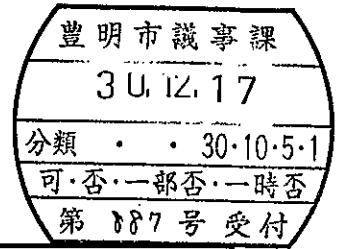 豊明市議事課
30.12.17
分類 ・ ・ 30・10・5・1
可・否・一部否・一時否
第 887 号 受付